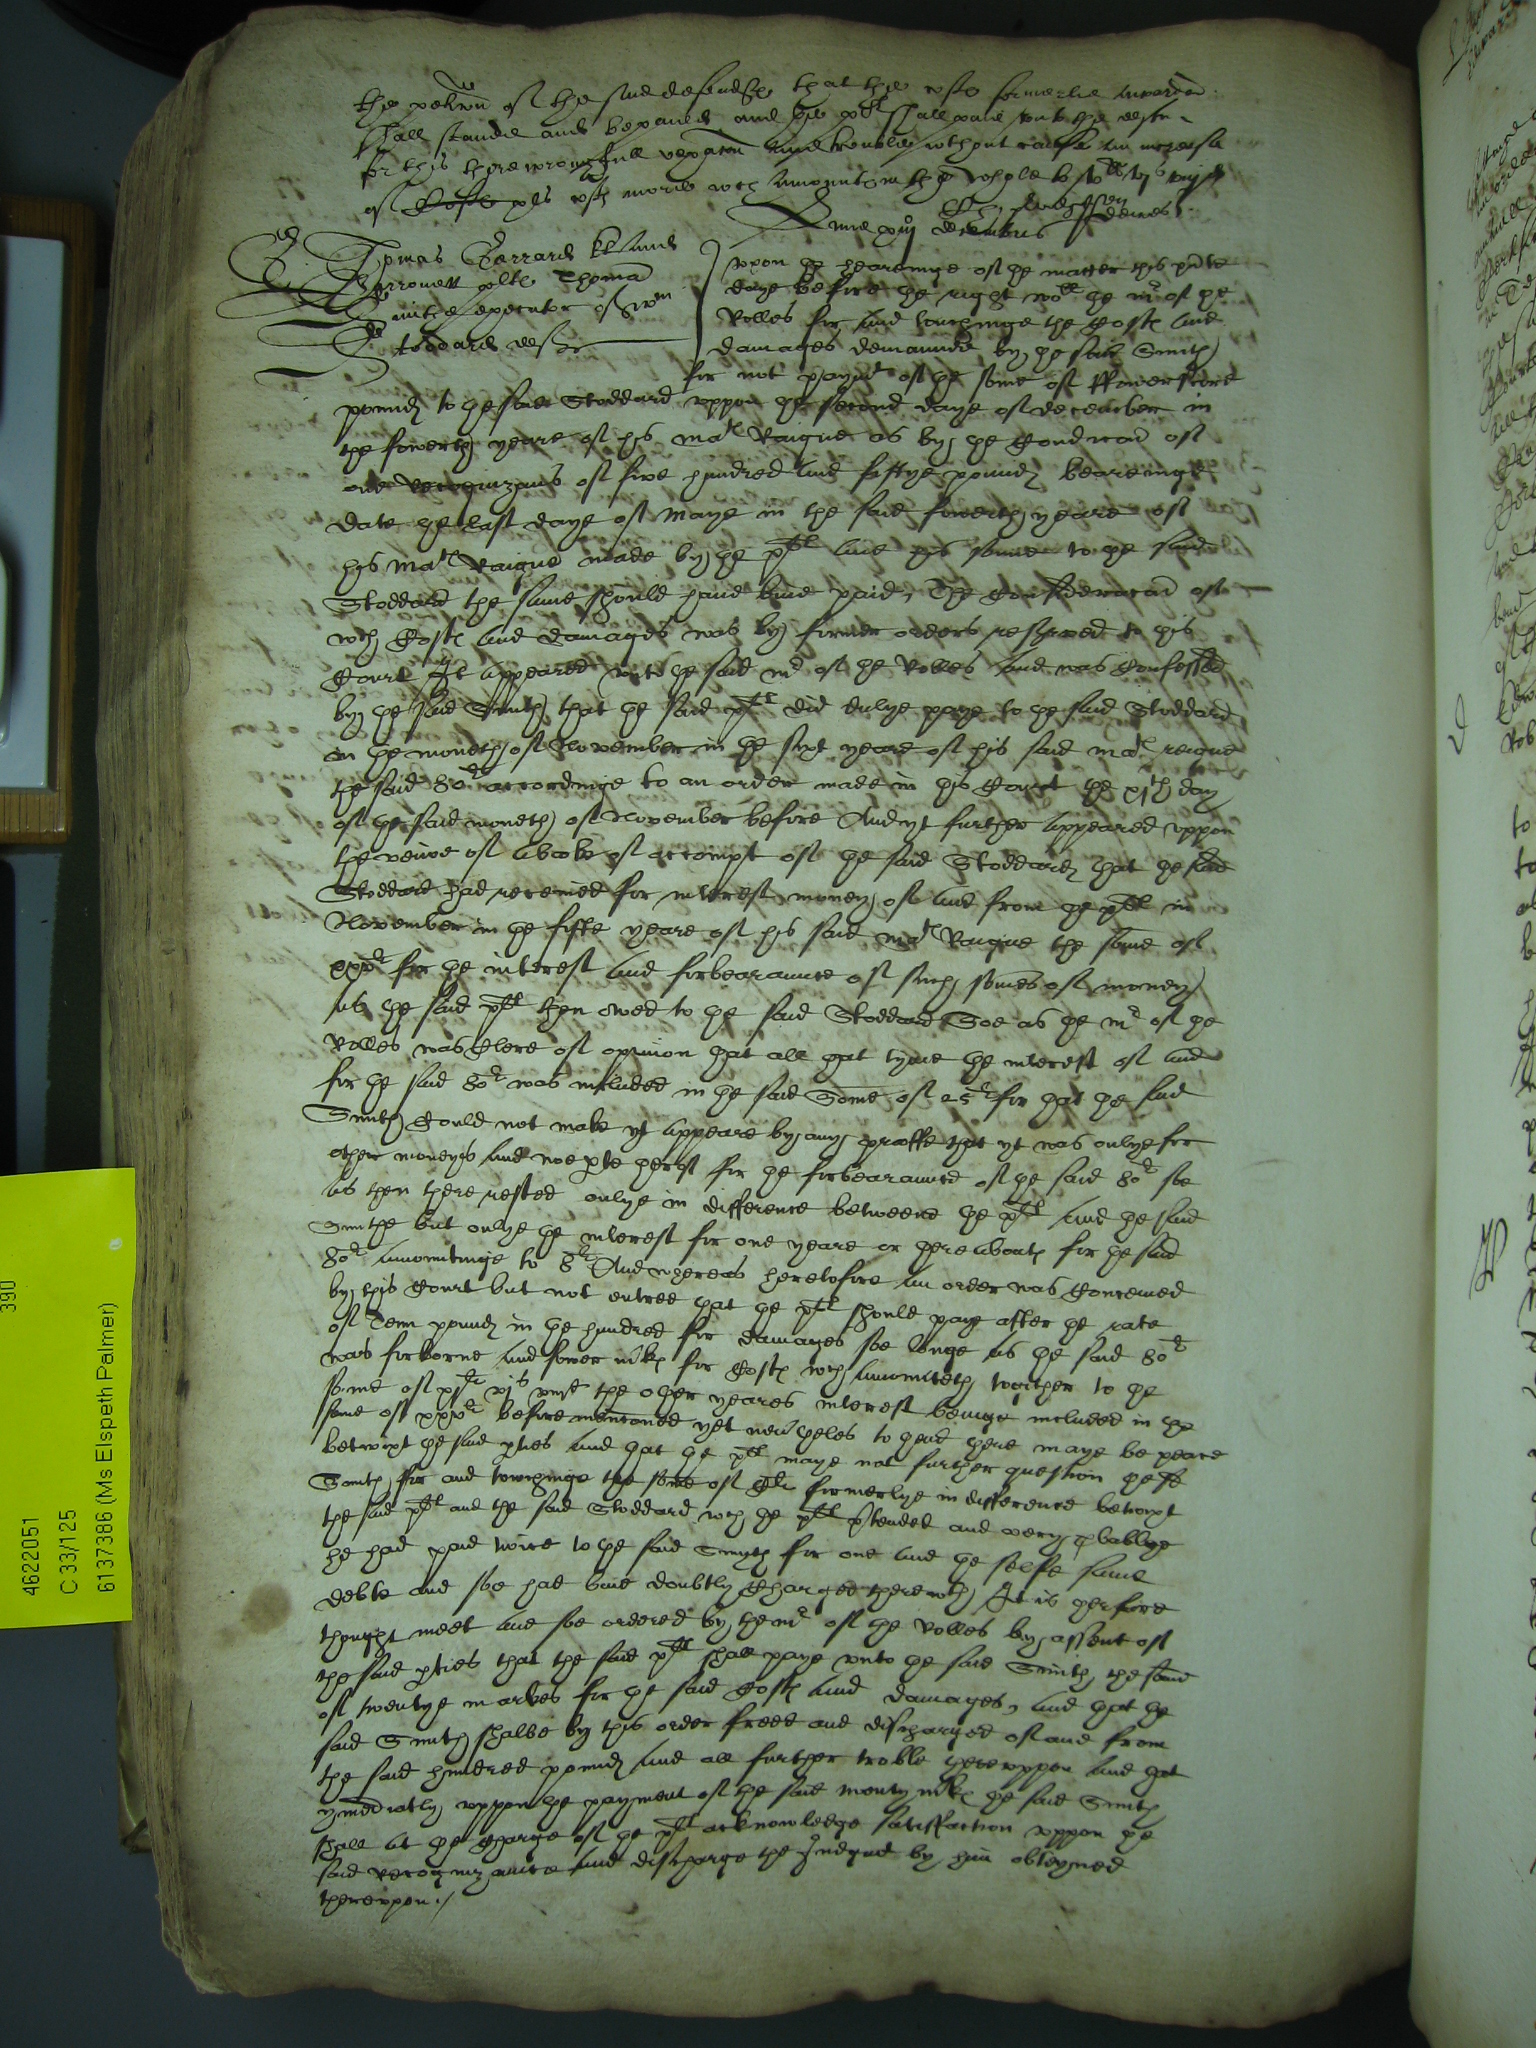 the peticon of the said defendts that the costs formerlie awarded
shall stande and be paied and the plt shall paie unto the deften
for this there wrongfull vexacon and trouble without cause an increase
of costs xls more wch amounteth in the whole to
Lune xiij Decembris
Thomas Gerrard kt and
plts Thomas
Smithe executor of Wm
Stoddard deft
Uppon the hearinge of the matter this pnte
daye before the right woll the mr of the
Rolles for and touchinge the costs and
damages demaunded by the said Smith
for not paymt of the some of ffowerscore
pounds to the said Stoddard uppon the second daye of December in
the fowerth yeare of his mats Raigne as by the condicon of
one Recognizans of five hundred and fiftye pounds beareinge
date the last daye of Maye in the said fowerth yeare of
his mats Raigne made by the plt and his sonne to the said
Stoddard the same should have bine paid, The consideracon of
wch costs and damages was by former orders reserved to this
Court It appeared unto the said mr of the Rolles and was confessed
by the said Smith that the said plt did dulye paye to the said Stoddard
in the moneth of November in the sixt yeare of his said mats reigne
the said 80li accordinge to an order made in this Court the xjth day
of the said moneth of November before And yt further appeared uppon
the veiwe of a booke of accompt of the said Stoddards that the said
Stoddard had received for interest money of and from the plt in
November in the fifte yeare of his said mats Raigne the some of
xxvli for the interest and forbearaunce of such somes of money
as the said plt then owed to the said Stoddard Soe as the mr of the
Rolles was clere of opinion that all that tyme the interest of and
for the said 80li was included in the said Some of 25li for that the said
Smith could not make yt appeare by any prooffe that yt was onlye for
other moneys and noe pte therof for the forbearaunce of the said 80li soe
as then there rested onlye in difference betweene the plt and the said
Smithe but onlye the interest for one yeare or thereabouts for the said
80li amountinge to 8li And whereas heretofore an order was conceived
by this Court but not entred that the plt should paye after the rate
of Tenn pounds in the hundred for damages soe longe as the said 80li
was forborne and fower mks for costs wch amounteth together to the
some of xli vjs the other yeares interest beinge included in the
some of xxvli before mencioned yet nevertheles to thend there maye be peace
betwixt the said pties and that the plt maye not further question the
Smith for and towchinge the some of Cli formerlye in difference betwixt
the said plt and the said Stoddard wch the plt ptended and verey pbablye
he had paid twice to the said Smyth for one and the selfe same
debte and soe had bine doubly charged therewth It is therfore
thought meet and soe ordered by the mr of the Rolles by assent of
the said pties that the said plt shall paye unto the said Smith the some
of twentye markes for the said costs and damages, and that the
said Smith shalbe by this order freed and discharged of and from
the said hundred pounds and all further troble thereuppon and that
ymediatly uppon the payment of the said twenty mks the said Smith
shall at the charge of the plt acknowledge satisffaction uppon the
said recognizance and discharge the Judgmt by him obteyned
thereupon./
390
4622051
C 33/125
6137386 (Ms Elspeth Palmer)